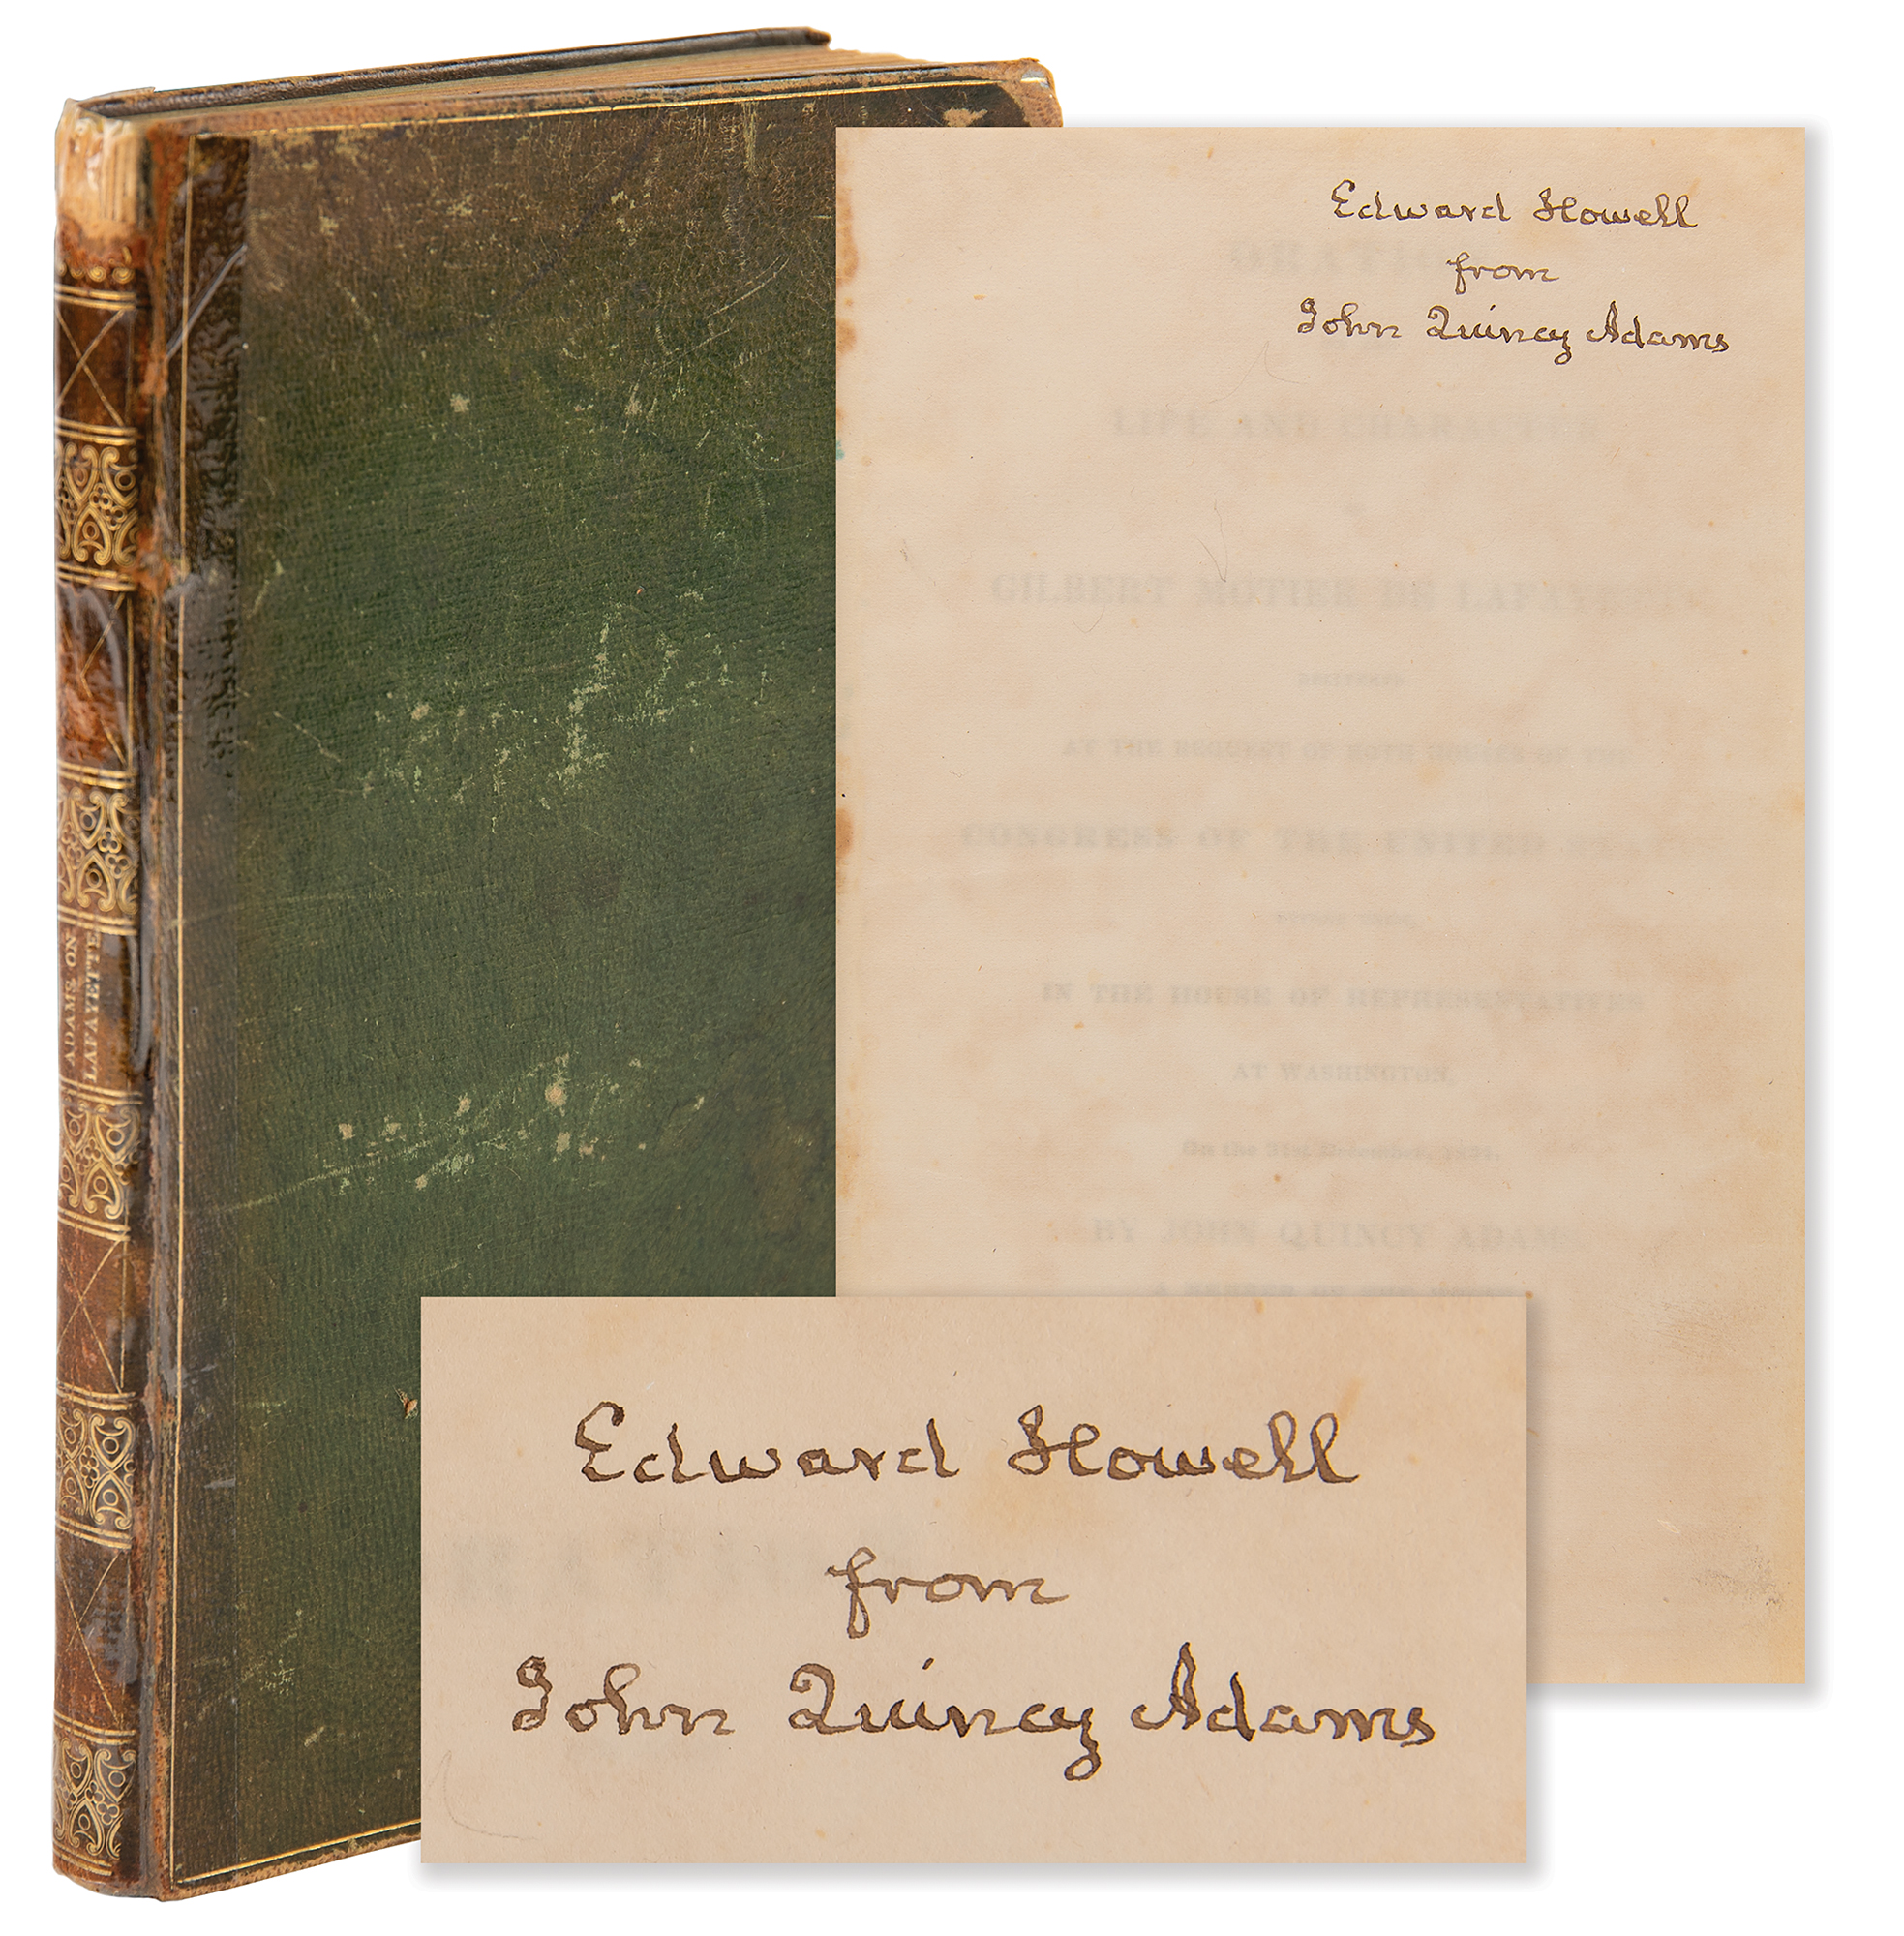 ADAMS ON
LAFAYETTE
Edward Howell
from
John Quincy Adams
ORATION
LIFE AND CHARACTER
GILBERT MOTIER DE LAFAYETTE
DELIVERED
AT THE REQUEST OF BOTH HOUSES OF THE
CONGRESS OF THE UNITED
IN THE HOUSE OF REPRESENTATIVES
AT WASHINGTON,
On the 31st December, 1834.
BY JOHN QUINCY ADAMS
A MEMBER OF THE HOUSE
Edward Howell
from
John Quincy Adams